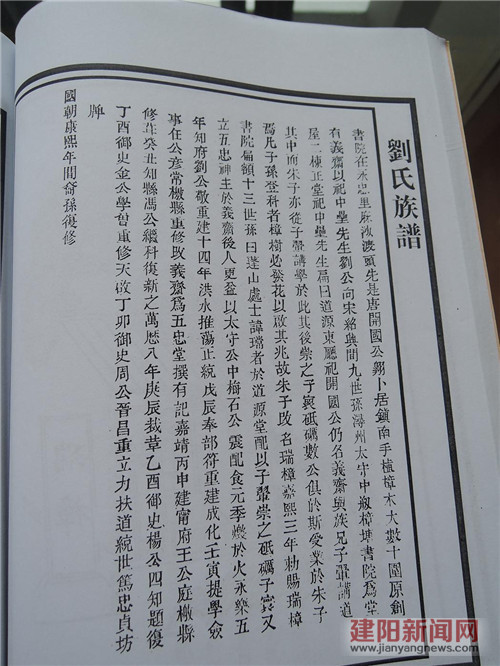 劉氏族譜
書院在永忠里麻沙渡頭先是唐開國公翺小居鎮南手植樟木大數十圍原創
有義齋以祀中壘先生劉公向宋紹興間九世孫潯州太守中砌樟埂書院爲堂
屋二棟正堂祀中壘先生扁曰道源東廳祀開國公仍名義齋與族兄子翬講道
其中而朱子亦從子翬講學於此其後崇之子寰砥礪數公俱於斯受業於朱子
爲凡子孫登科者樟樹必發花以啟其兆故朱子改名瑞樟嘉熙三年勅賜瑞樟
書院扁額十三世孫曰蓬山處士諱璿者於道源堂配以子翬崇之砥礪子寰又
立五忠神主於義齋後人更益以太守公中撫石公震配食元季燬於火永樂五
年知府劉公敬重建十四年洪水推蕩正統戊辰奉部符重建成化壬寅提學僉
事任公彦常檄縣重修改義齋爲五忠堂撰有記嘉靖丙申建甯府王公庭檄縣
修葺癸丑知縣馮公繼科復新之萬厯八年庚辰裁革乙酉御史楊公四知題復
丁酉御史金公學曾重修天啟丁卯御史周公晉昌重立力扶道統世篤忠貞坊
牌
國朝康熙年間裔孫復修
建阳新闻网
www.jianyangnews.com